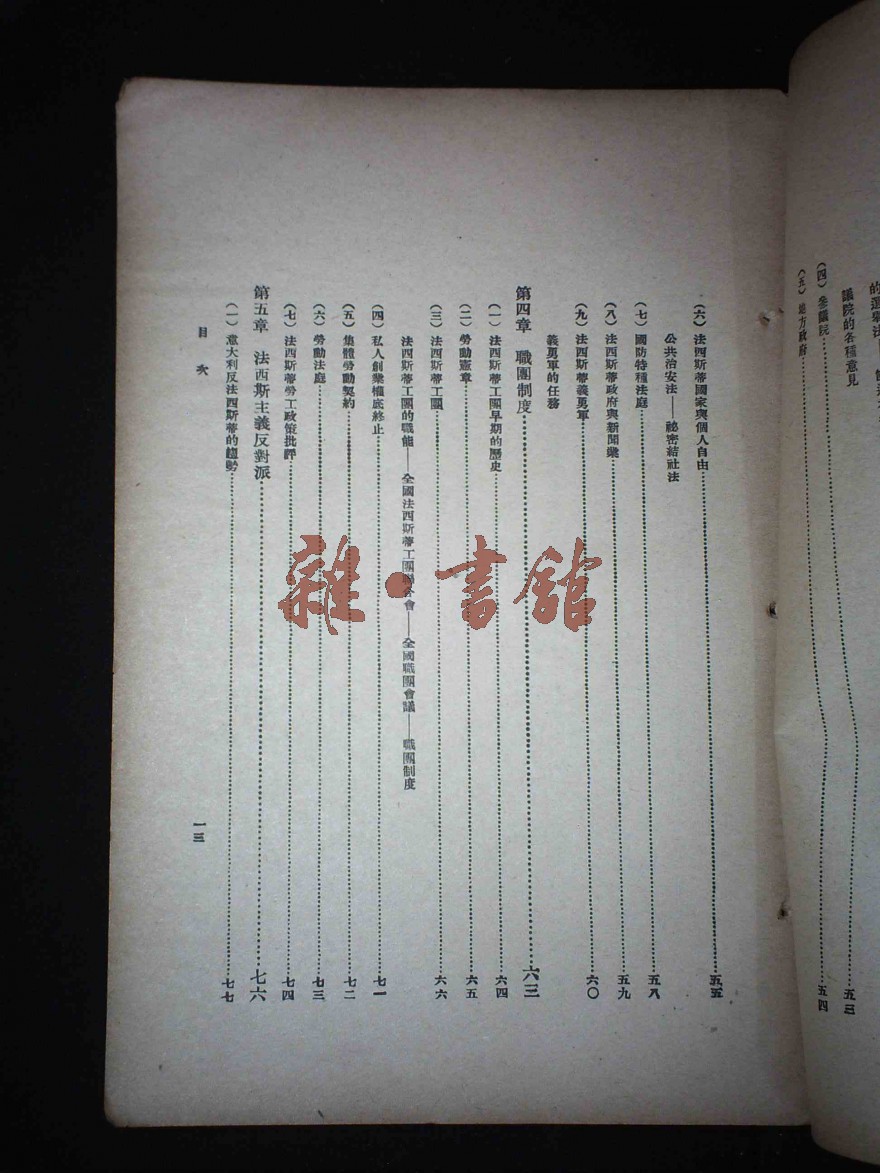 的選舉法
議院的各種意見 五三
(四)參議院 五四
(五)地方政府
(六)法西斯蒂國家與個人自由 五五
公共治安法——祕密結社法
(七)國防特種法庭 五八
(八)法西斯蒂政府與新聞業 五九
(九)法西斯蒂義勇軍 六〇
義勇軍的任務
第四章 職團制度 六三
(一)法西斯蒂工團早期的歷史 六四
(二)勞動憲章 六五
(三)法西斯蒂工團 六六
法西斯蒂工團的職能——全國法西斯蒂工團聯合會——全國職團會議——職團制度
(四)私人創業權底終止 七一
(五)集體勞動契約 七二
(六)勞動法庭 七三
(七)法西斯蒂勞工政策批評 七四
第五章 法西斯主義反對派 七六
(一)意大利反法西斯蒂的趨勢 七七
目次
一三
雜·書館